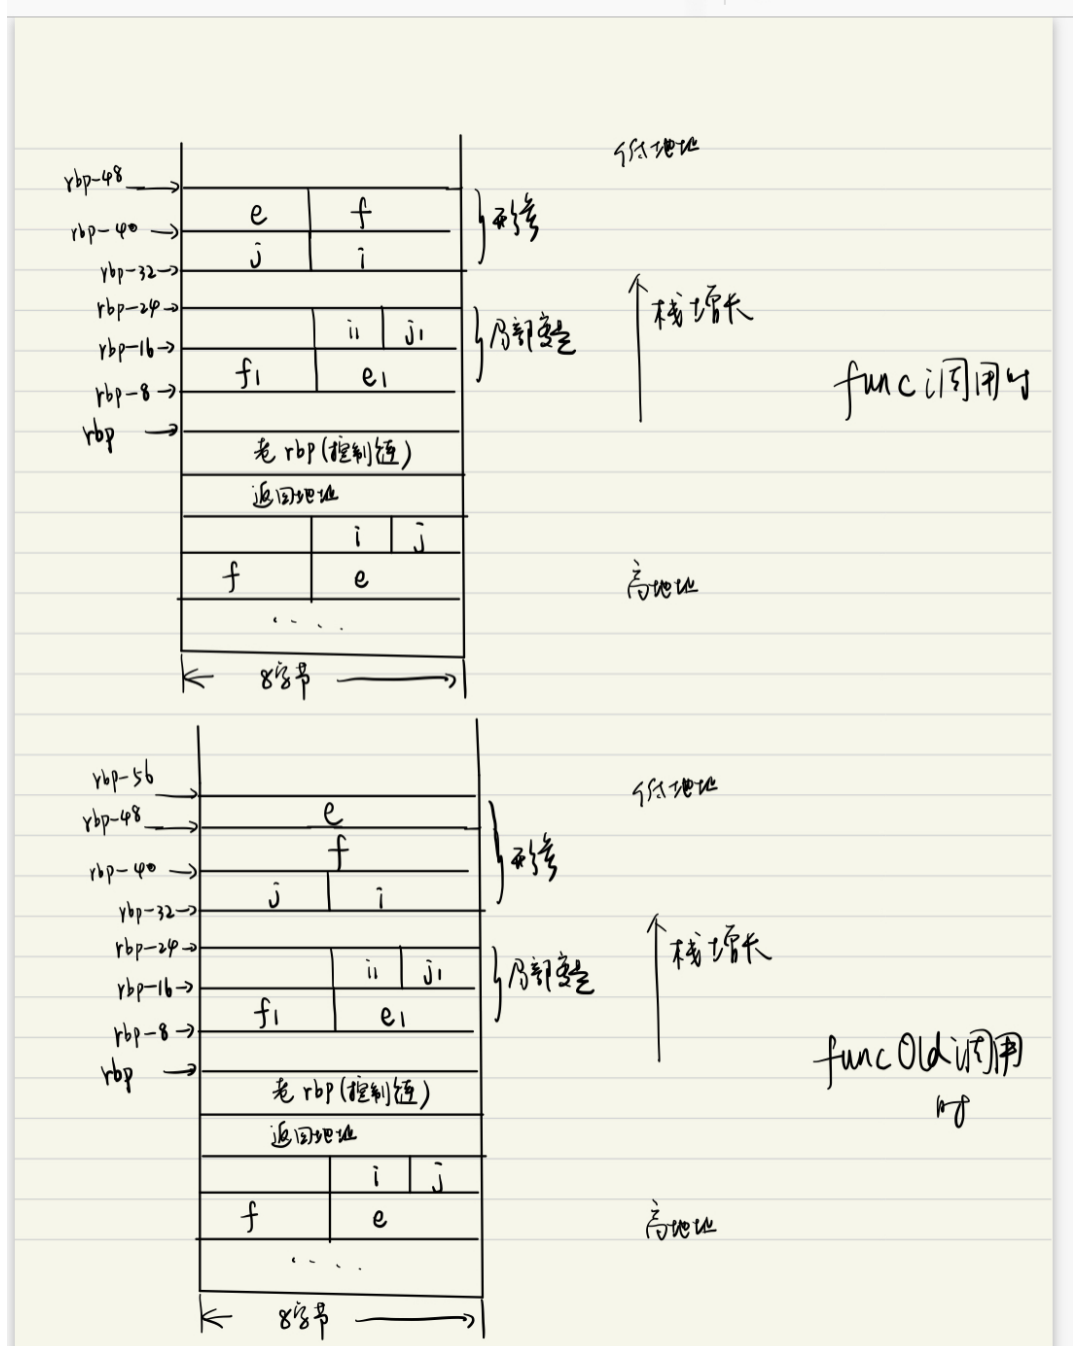 低地址
rbp-48
e f
rbp-40
形参
j i
rbp-32
rbp-24
栈增长
i1 j1
局部变量
rbp-16
f1 e1
func调用时
rbp-8
rbp
老rbp(控制链)
返回地址
i j
f e
高地址
....
8字节
rbp-56
低地址
e
rbp-48
f
形参
rbp-40
j i
rbp-32
rbp-24
栈增长
i1 j1
局部变量
rbp-16
f1 e1
rbp-8
funcOld调用
时
rbp
老rbp(控制链)
返回地址
i j
f e
高地址
....
8字节